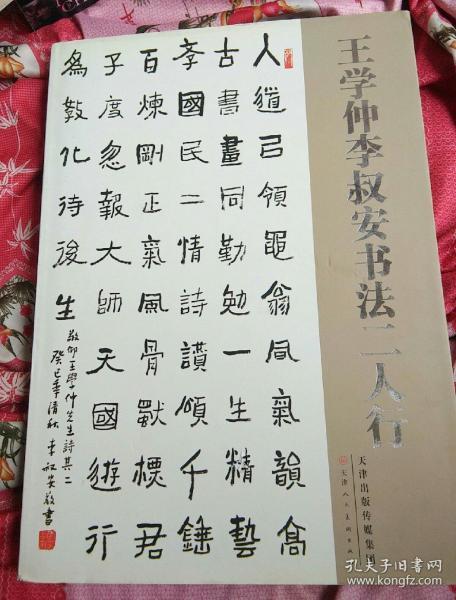 王学仲李叔安书法二人行
天津出版传媒集团
天津人民美术出版社
人道㠯領黽翁風氣韻高
古書畫同勤勉一生精藝
孝國民二情詩讃頌千錘
百煉剛正氣風骨獻標君
子度忽報大師天國遊行
為教化待後生
敬仰王學仲先生詩其二
癸巳年清秋李叔安敬書
孔夫子旧书网
kongfz.com